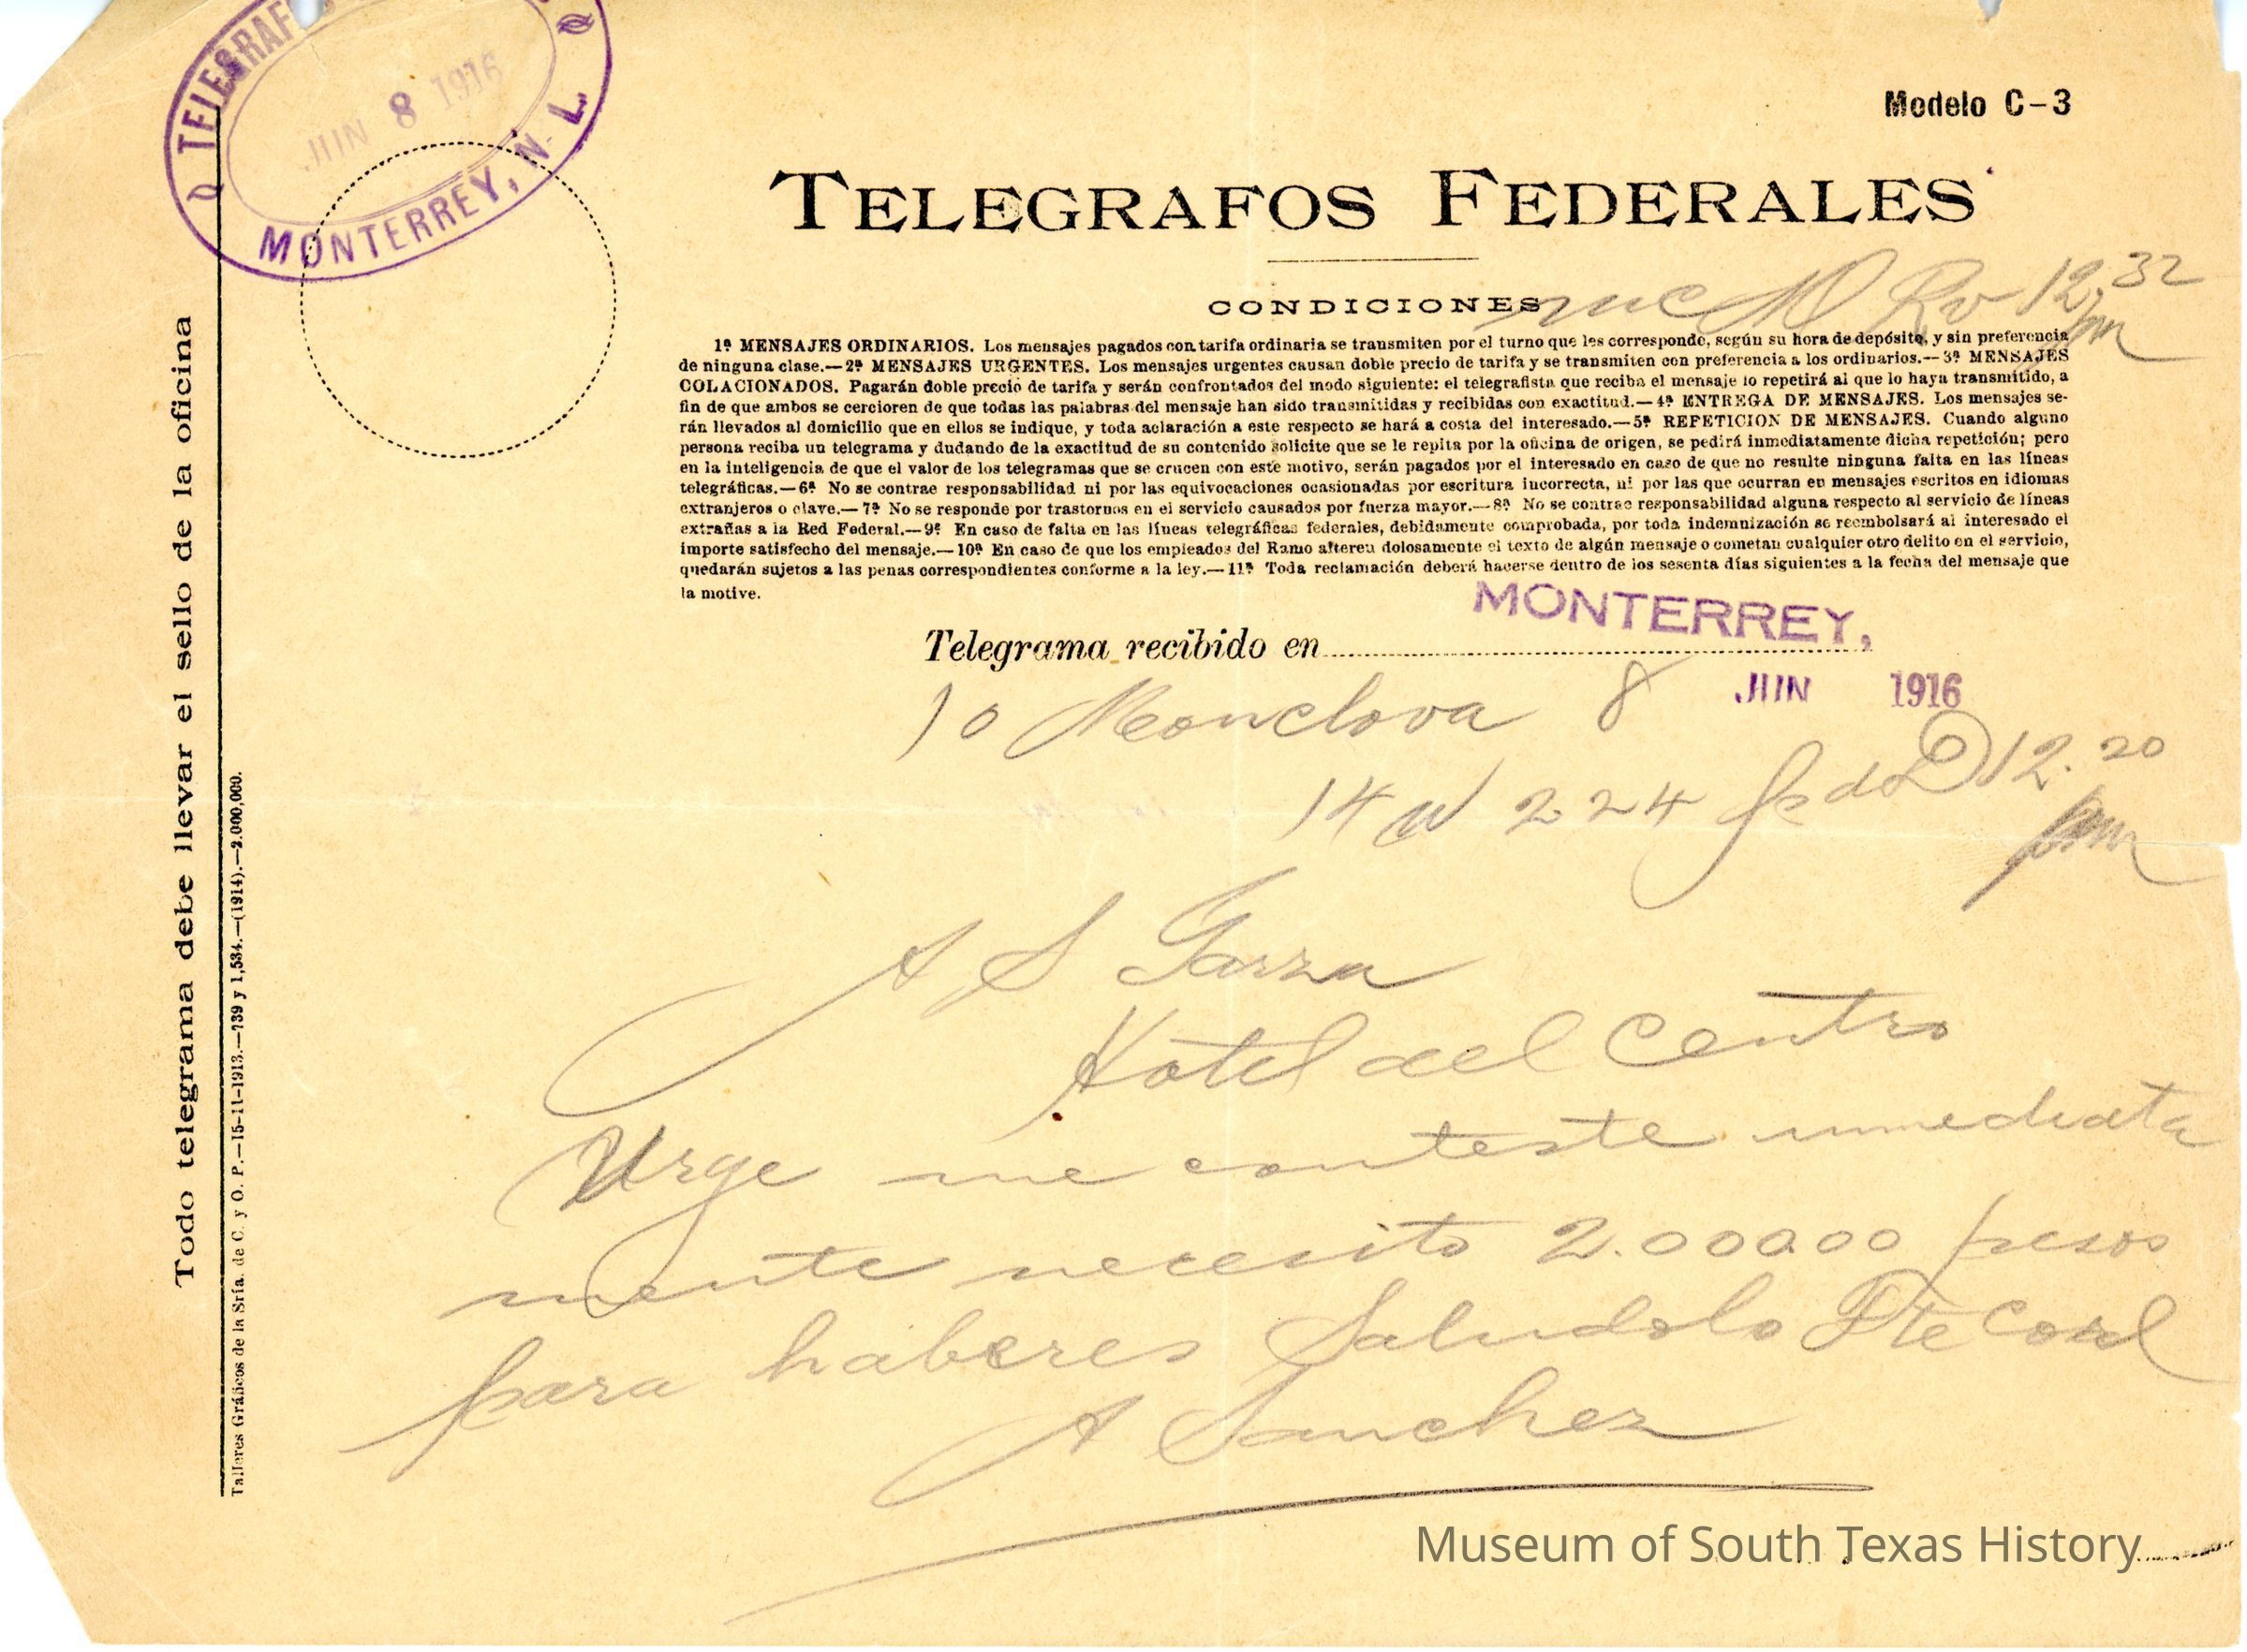 TELEGRAFOS
JUN 8 1916
MONTERREY, N. L.
Modelo C-3
TELEGRAFOS FEDERALES
12.32
pm
CONDICIONES
1ª MENSAJES ORDINARIOS. Los mensajes pagados con tarifa ordinaria se transmiten por el turno que les corresponde, según su hora de depósito, y sin preferencia
de ninguna clase.—2ª MENSAJES URGENTES. Los mensajes urgentes causan doble precio de tarifa y se transmiten con preferencia a los ordinarios.—3ª MENSAJES
COLACIONADOS. Pagarán doble precio de tarifa y serán confrontados del modo siguiente: el telegrafista que reciba el mensaje lo repetirá al que lo haya transmitido, a
fin de que ambos se cercioren de que todas las palabras del mensaje han sido transmitidas y recibidas con exactitud.—4ª ENTREGA DE MENSAJES. Los mensajes se-
rán llevados al domicilio que en ellos se indique, y toda aclaración a este respecto se hará a costa del interesado.—5ª REPETICION DE MENSAJES. Cuando alguno
persona reciba un telegrama y dudando de la exactitud de su contenido solicite que se le repita por la oficina de origen, se pedirá inmediatamente dicha repetición; pero
en la inteligencia de que el valor de los telegramas que se crucen con este motivo, serán pagados por el interesado en caso de que no resulte ninguna falta en las líneas
telegráficas.—6ª No se contrae responsabilidad ni por las equivocaciones ocasionadas por escritura incorrecta, ni por las que ocurran en mensajes escritos en idiomas
extranjeros o clave.—7ª No se responde por trastornos en el servicio causados por fuerza mayor.—8ª No se contrae responsabilidad alguna respecto al servicio de líneas
extrañas a la Red Federal.—9ª En caso de falta en las líneas telegráficas federales, debidamente comprobada, por toda indemnización se reembolsará al interesado el
importe satisfecho del mensaje.—10ª En caso de que los empleados del Ramo alteren dolosamente el texto de algún mensaje o cometan cualquier otro delito en el servicio,
quedarán sujetos a las penas correspondientes conforme a la ley.—11ª Toda reclamación deberá hacerse dentro de los sesenta días siguientes a la fecha del mensaje que
la motive.
Telegrama recibido en MONTERREY,
10 Monclova 8 JUN 1916
14 W 224 D 12.20
pm
A S Garza
Hotel del Centro
Urge me conteste inmediata
mente necesito 2.000.00 pesos
para haberes Saludolo Tte Corl
A Sanchez
Todo telegrama debe llevar el sello de la oficina
Talleres Gráficos de la Sría. de C. y O. P.—15-11-1913.—739 y 1,534.—(1914).—2.000,000.
Museum of South Texas History